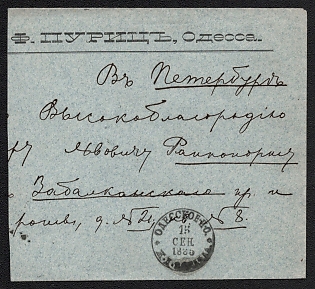 Ф. ПУРИЦЪ, Одесса.
Въ Петербургъ
Высокоблагородію
Львовичу Раппопорту
Забалканскаго пр. и
д. № 21, № 8.
ОДЕССКОЕ
15
СЕН